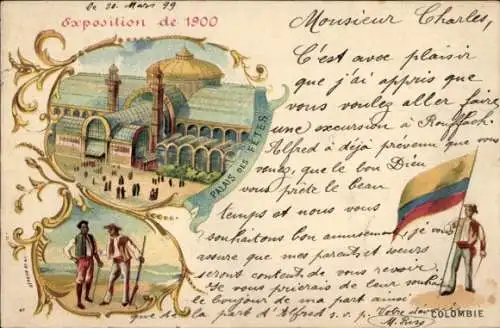 le 20 Mars 99
Exposition de 1900
PALAIS DES FÊTES
Monsieur Charles,
C'est avec plaisir
que j'ai appris que
vous voulez aller faire
une excursion à Rouffach.
Alfred a déjà prévenu que vous
venez, que le bon Dieu
vous prête le beau
temps et nous vous
souhaitons bon amusement, je vous
assure que mes parents et sœurs
seront contents de vous revoir.
Je vous prierais de leur souhaiter
le boujour de ma part ainsi
que de la part d'Alfred s. v. p.
Votre
M.
COLOMBIE